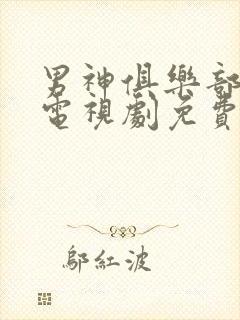 男神俱樂部
電視劇免費
鄔紅波